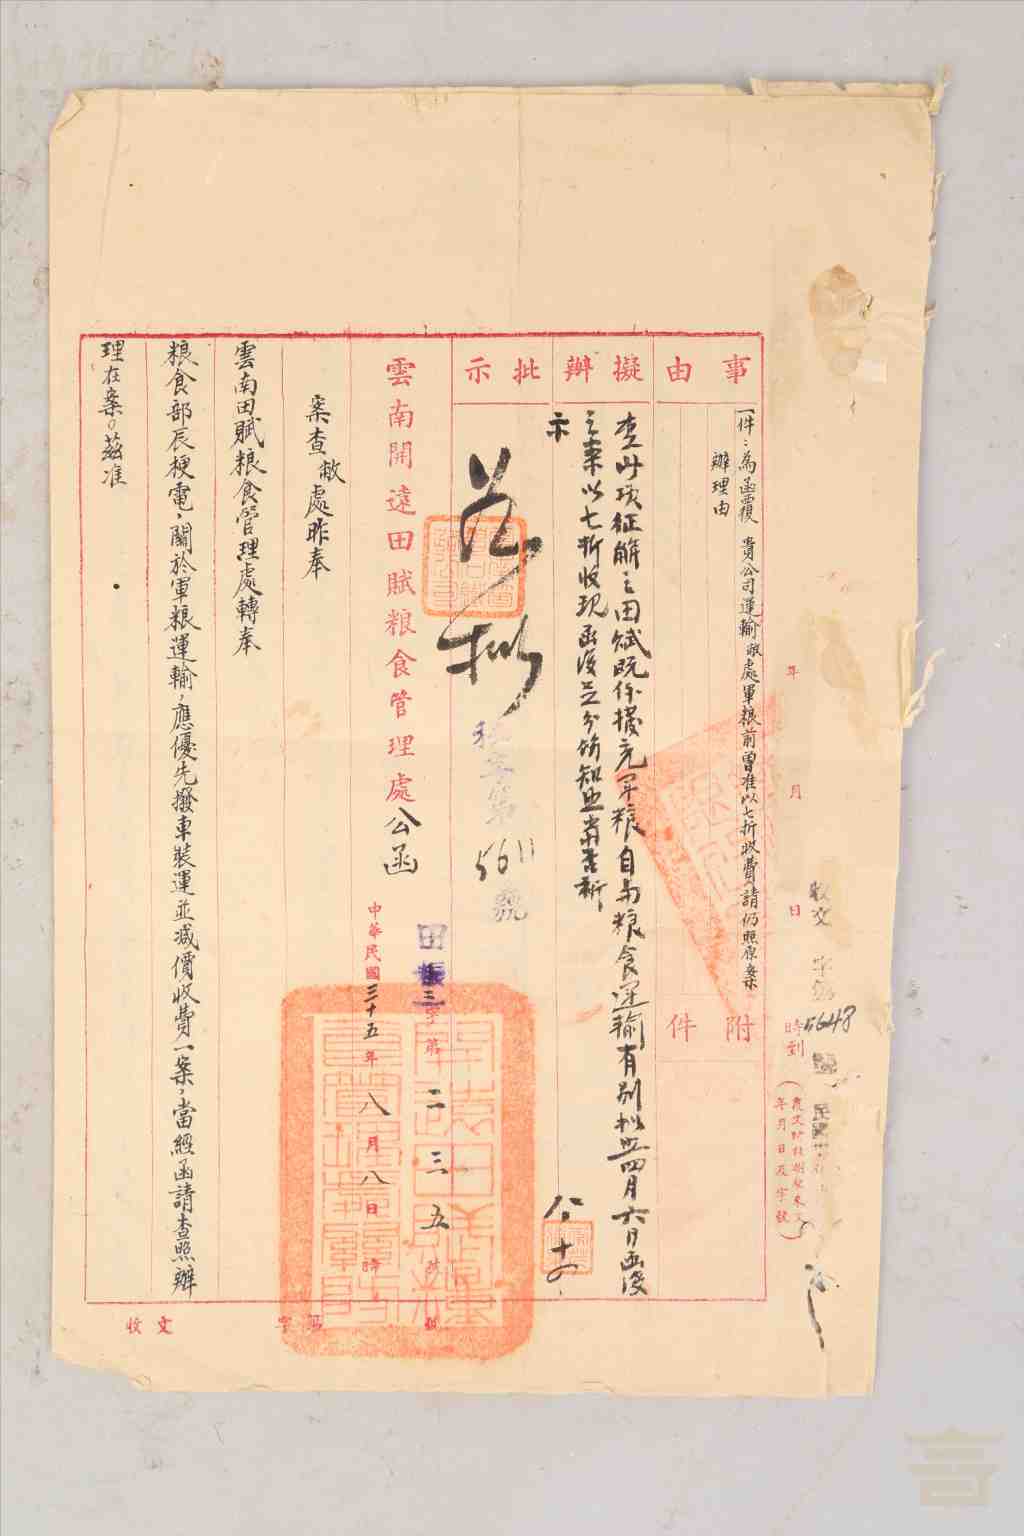 年 月 日 時到
收文 字第 5648 號
事由
一件：為函覆 貴公司運輸敝處軍粮前曾准以七折收費請仍照原案
辦理由
附件
擬辦
查此項征解之田賦既係撥充軍粮自與粮食運輸有別擬照四月六日函復
之案以七折收現函復並分飭知照當否祈
示
八 十四
批示
為擬
字第 5611 號
雲南開遠田賦粮食管理處公函
田 三字第二三五號
中華民國三十五年八月八日 時
案查敝處昨奉
雲南田賦粮食管理處轉奉
粮食部辰梗電，關於軍粮運輸，應優先撥車裝運並減價收費一案，當經函請查照辦
理在案。茲准
收文 字 號